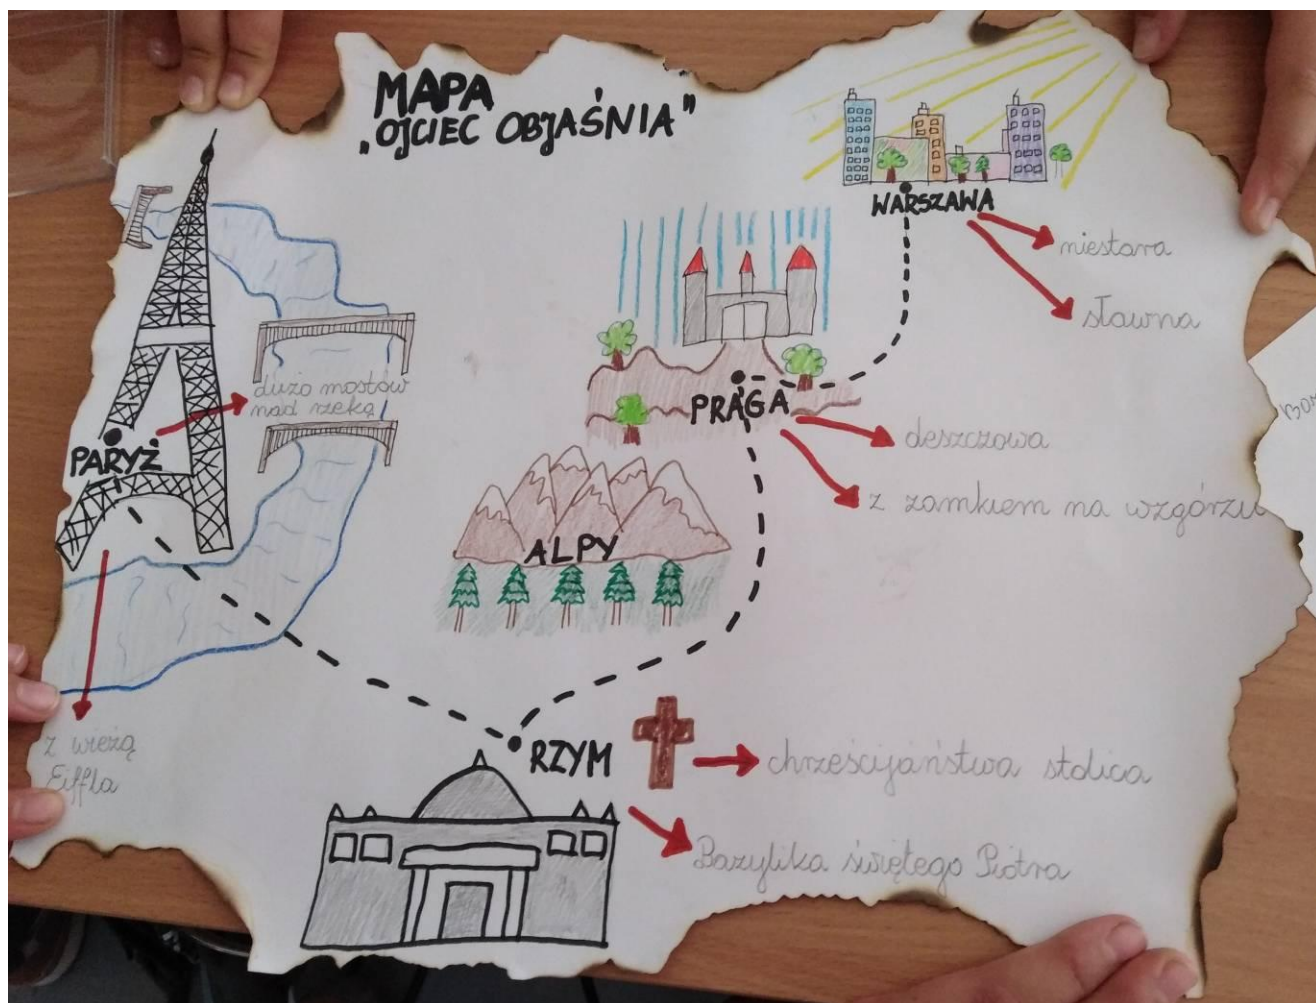 MAPA
„OJCIEC OBJAŚNIA”
WARSZAWA
niestara
sławna
PRAGA
deszczowa
z zamkiem na wzgórzu
dużo mostów
nad rzeką
PARYŻ
ALPY
z wieżą
Eiffla
RZYM
chrześcijaństwa stolica
Bazylika świętego Piotra